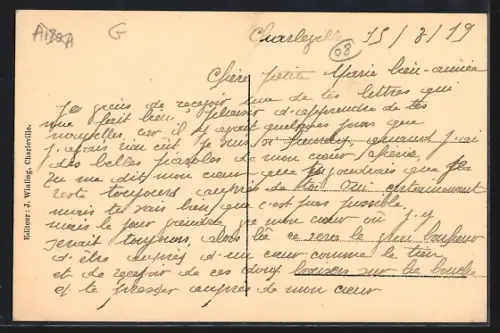 A180A
G
08
Charleville 15/3/19
Chère petite Marie bien-aimée
Je viens de recevoir une de tes lettres qui
me fait bien plaisir d'apprendre de tes
nouvelles, car il y avait quelques jours que
j'avais rien eut. Je suis si heureux quand j'ai
des belles paroles de mon cœur chérie
Tu me dit mon cœur que tu voudrais que je
reste toujours auprès de toi. Oui certainement
mais tu sais bien que c'est pas possible
mais le jour viendra je mon cœur où j'y
serait toujours, alors là ce sera le plus bonheur
d'être auprès d'un cœur comme le tien
et de recevoir de ces doux baisers sur la bouche
et te presser auprès de mon cœur
Editeur : J. Winling, Charleville.